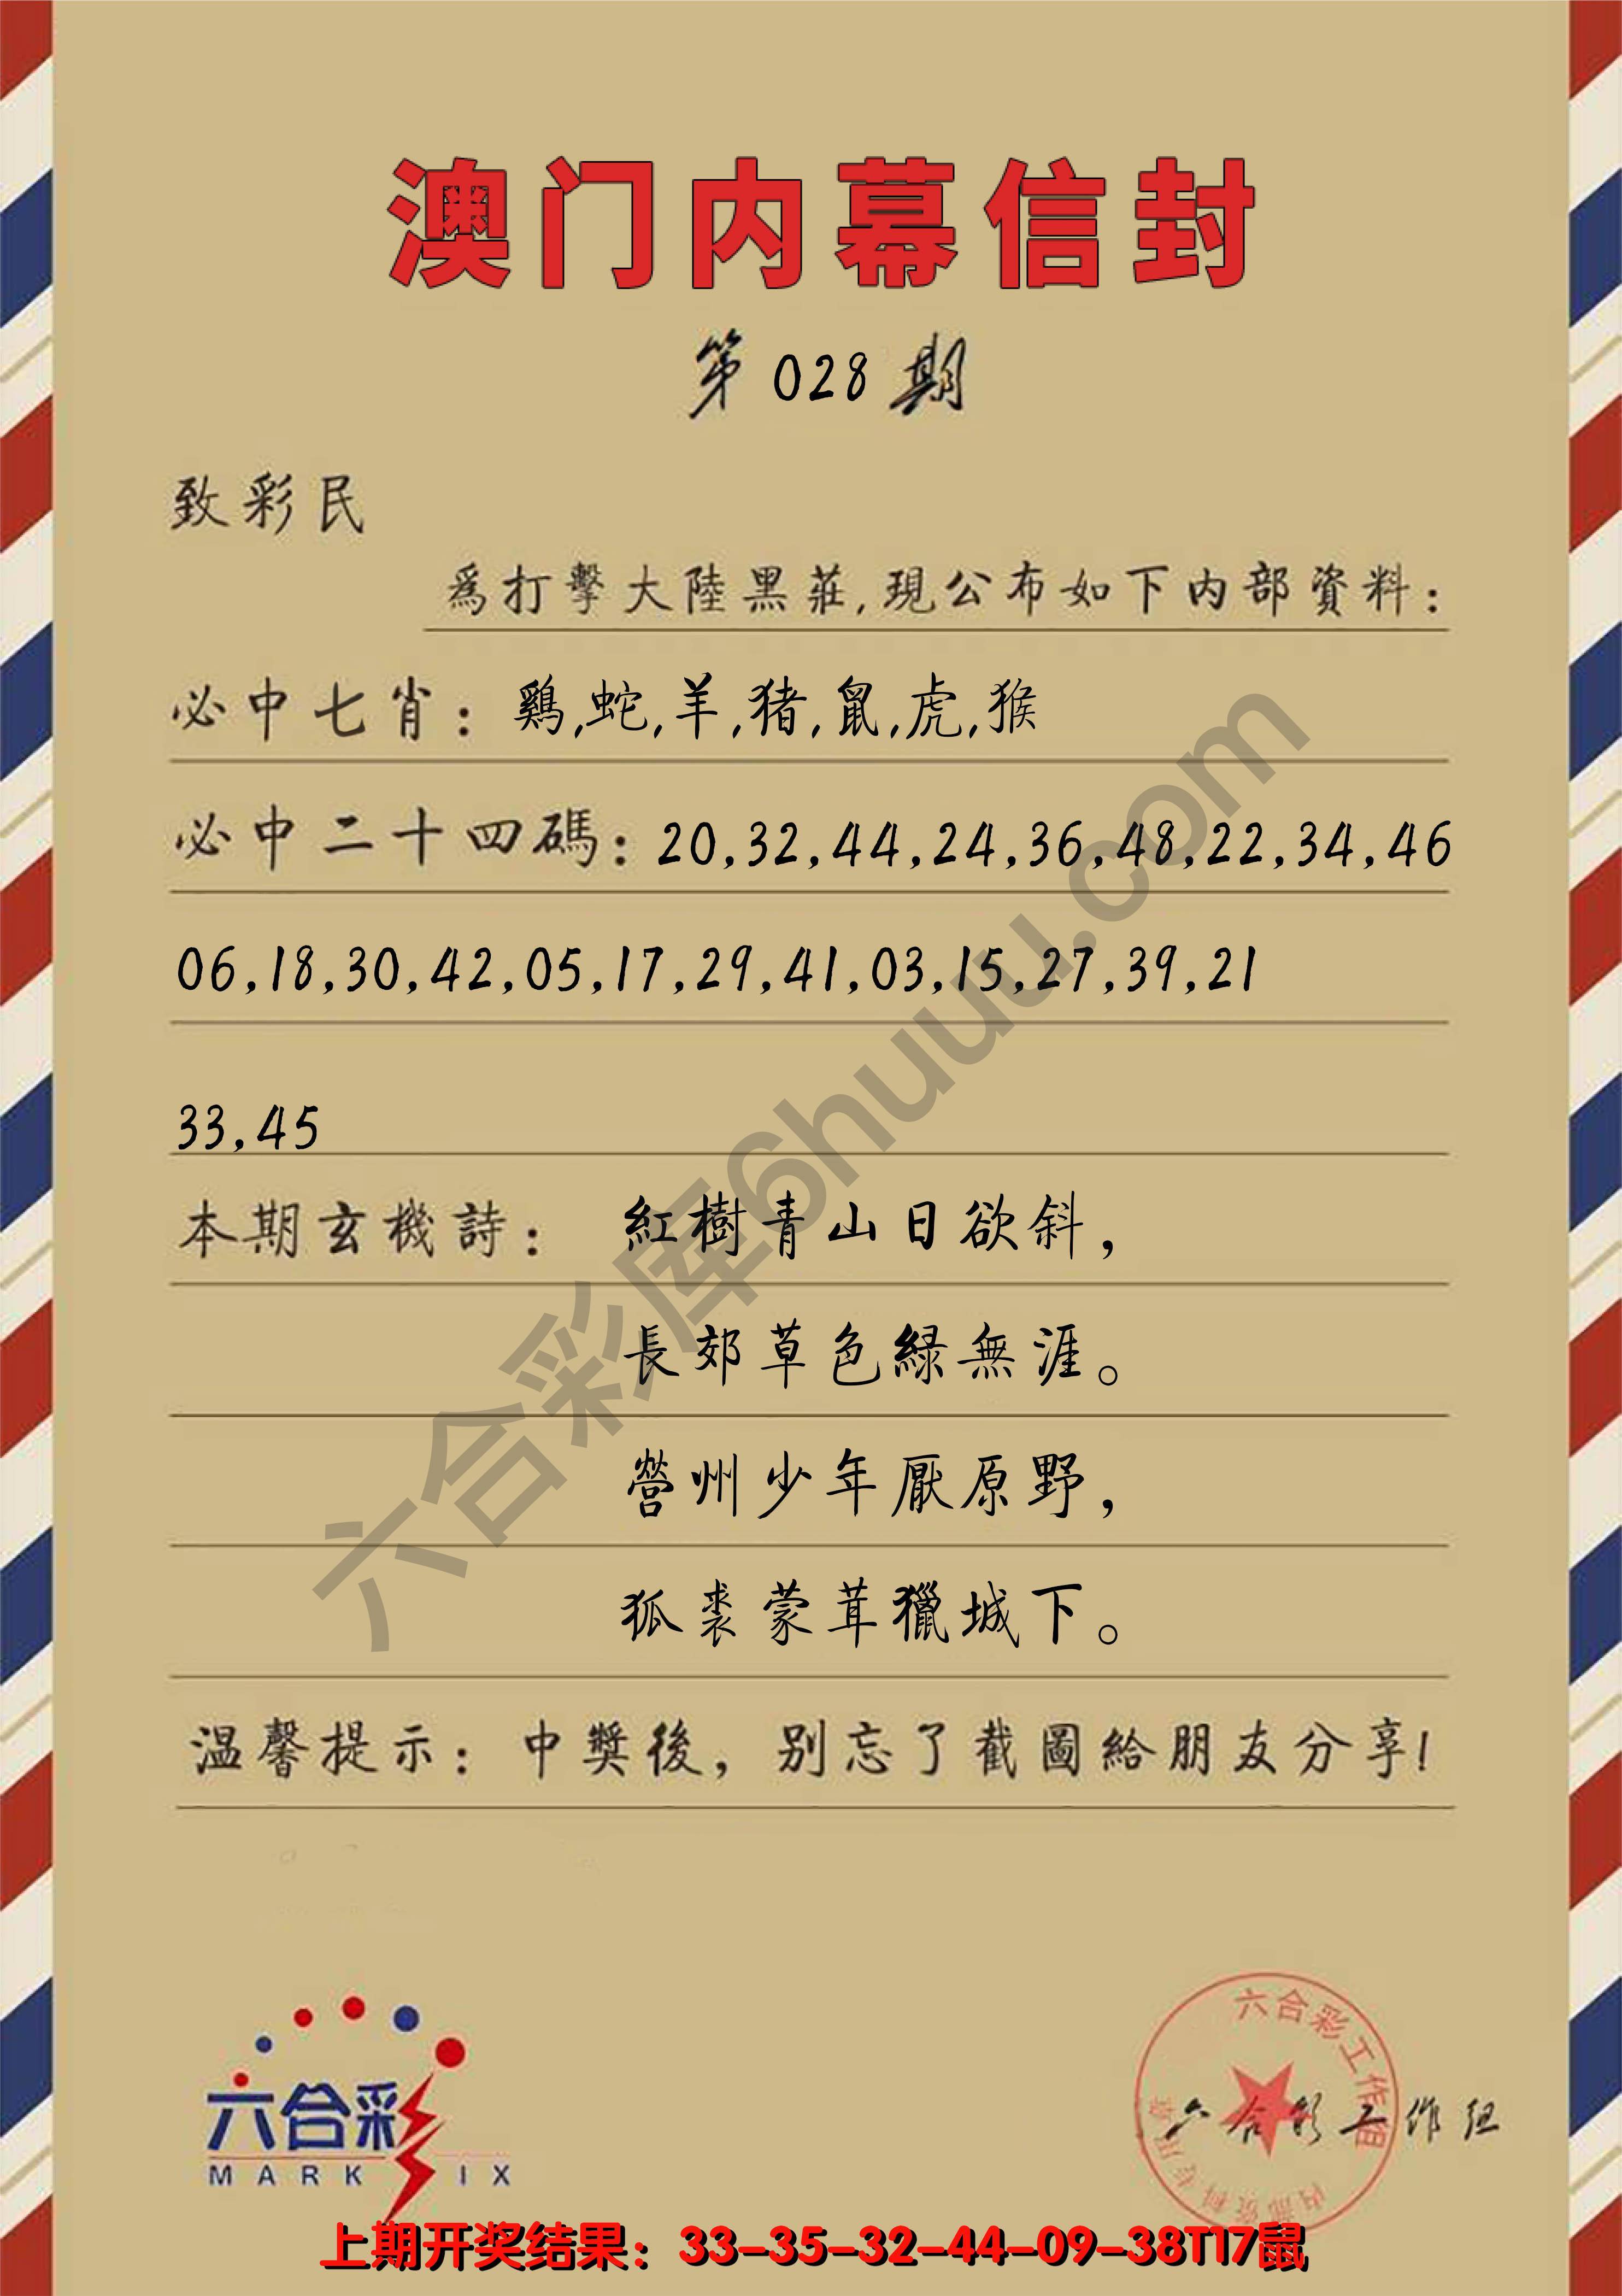 澳门内幕信封
第028期
致彩民
爲打擊大陸黑莊,現公布如下内部資料:
必中七肖: 鷄,蛇,羊,猪,鼠,虎,猴
必中二十四碼: 20,32,44,24,36,48,22,34,46
06,18,30,42,05,17,29,41,03,15,27,39,21
33,45
本期玄機詩: 紅樹青山日欲斜,
長郊草色緑無涯。
營州少年厭原野,
狐裘蒙茸獵城下。
温馨提示: 中獎後, 别忘了截圖給朋友分享!
六合彩库6huuu.com
六合彩
MARK IX
六合彩工作组
内部资料专用章
六合彩工作组
上期开奖结果: 33-35-32-44-09-38T17鼠